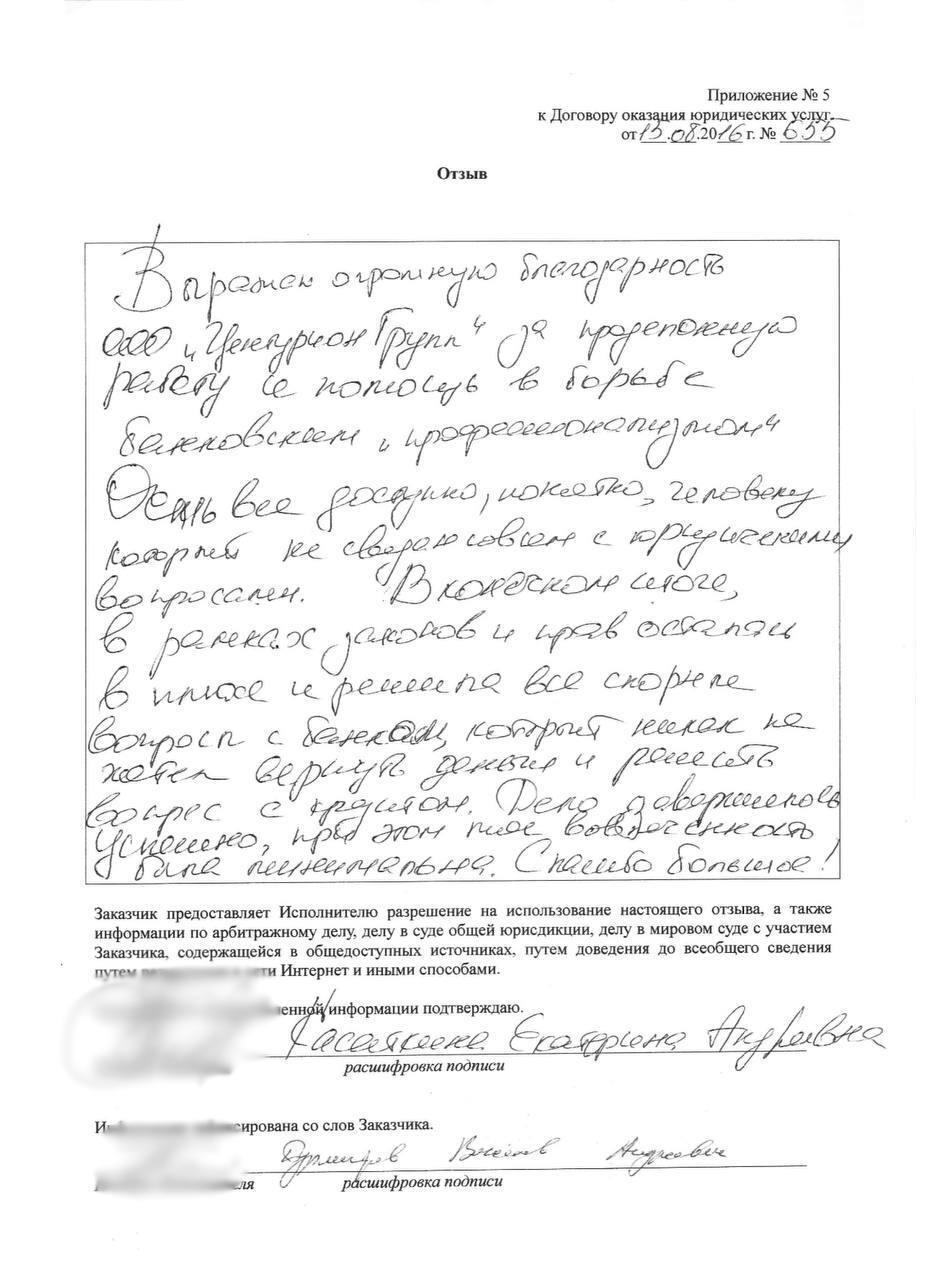 Приложение № 5
к Договору оказания юридических услуг
от 15.08.2016 г. № 655
Отзыв
Выражаю огромную благодарность
ООО „Центурион Групп“ за проделанную
работу и помощь в борьбе
банковским „профессионализмом“
Очень все доступно, понятно, человеку
который не сведом совсем с юридическими
вопросами. В конечном итоге,
в рамках законов и прав осталась
в плюсе и решила все спорные
вопросы с банком, который никак не
хотел вернуть деньги и решать
вопрос с кредитом. Дело завершилось
успешно, при этом моя вовлеченность
была минимальна. Спасибо большое!
Заказчик предоставляет Исполнителю разрешение на использование настоящего отзыва, а также
информации по арбитражному делу, делу в суде общей юрисдикции, делу в мировом суде с участием
Заказчика, содержащейся в общедоступных источниках, путем доведения до всеобщего сведения
путем сети Интернет и иными способами.
информации подтверждаю.
Касаткина Екатерина Андреевна
расшифровка подписи
со слов Заказчика.
Андреевич
расшифровка подписи